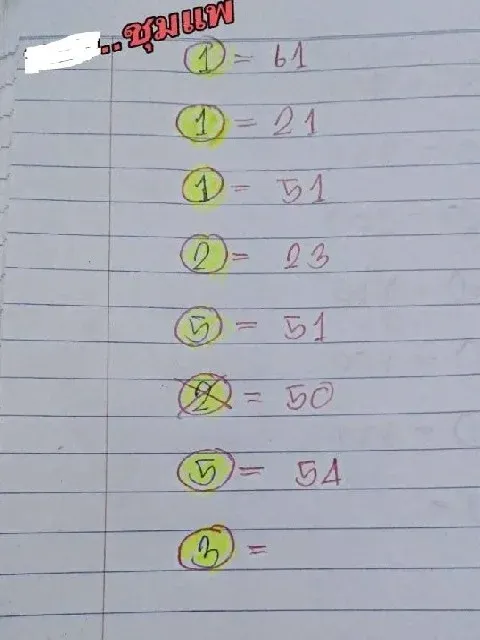 ..ชุมแพ
1 = 61
1 = 21
1 = 51
2 = 23
5 = 51
2 = 50
5 = 54
3 =